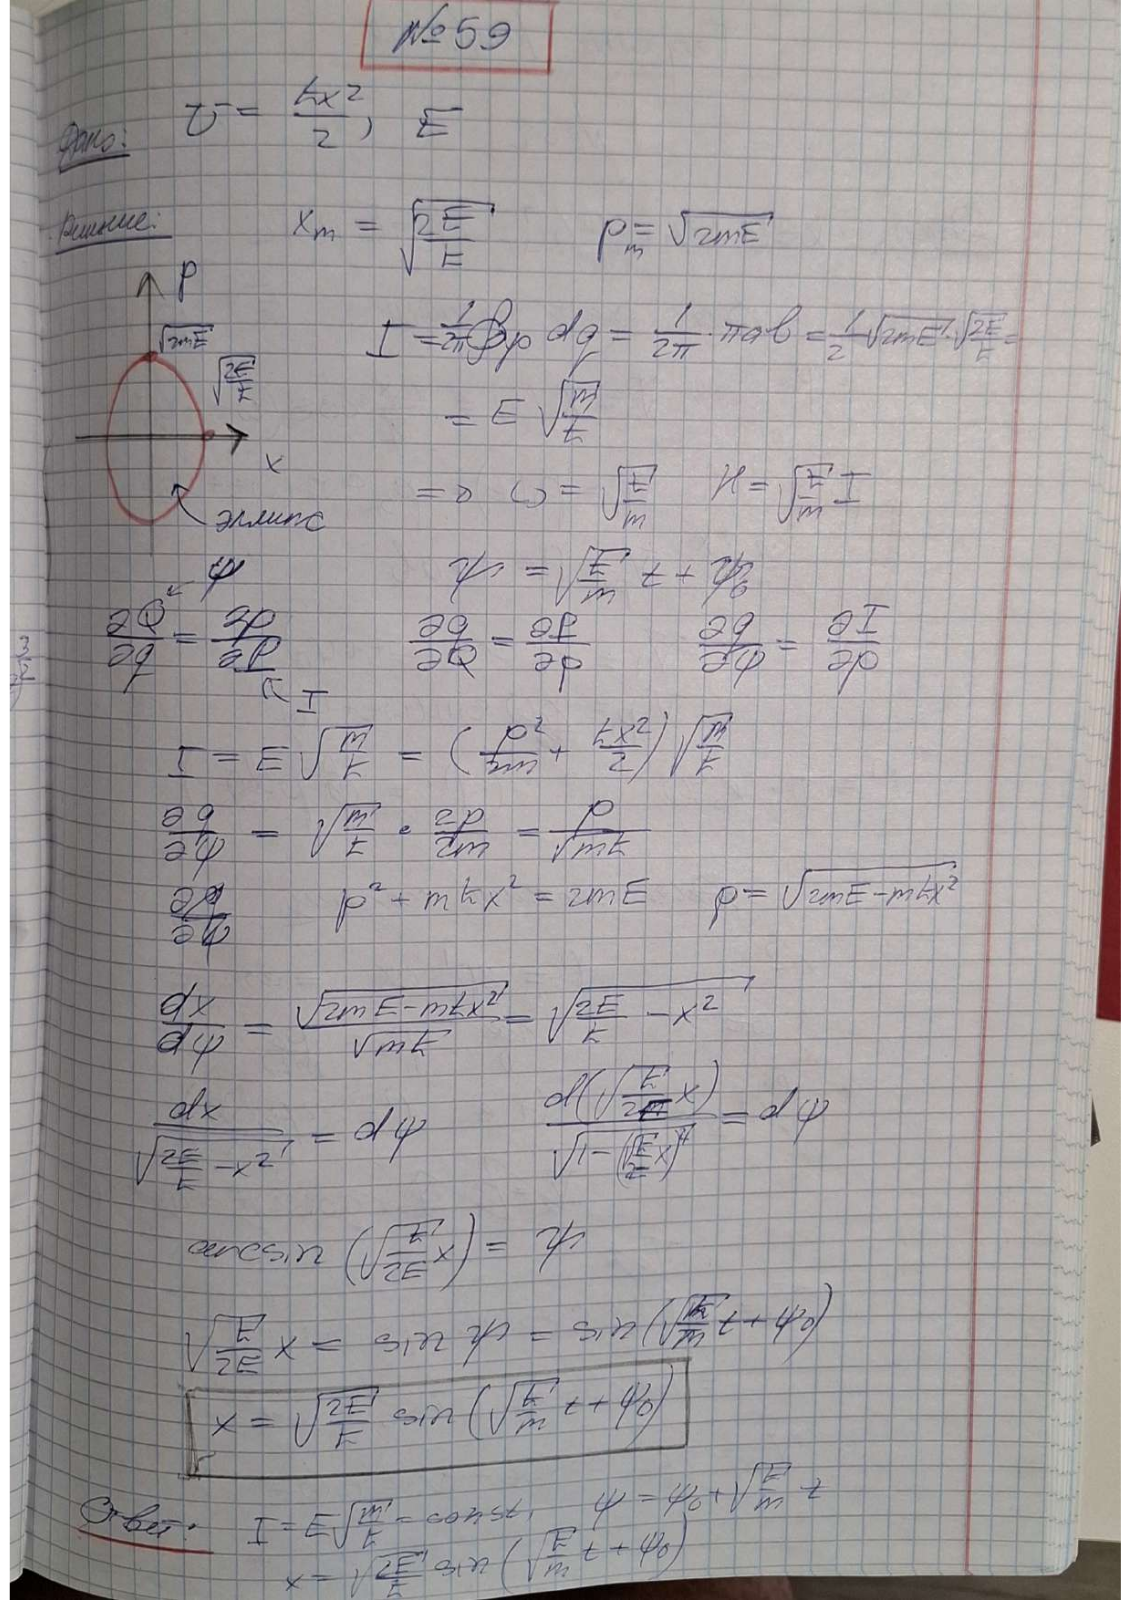 №59
Дано: U = kx²/2, E
Решение: xₘ = √(2E/k) pₘ = √(2mE)
p
√(2mE)
I = 1/2π ∮p dq = 1/2π · πab = 1/2 √(2mE) · √(2E/k) =
√(2E/k)
= E √(m/k)
x
= α ω = √(k/m) H = √(k/m) I
эллипс
ψ
ψ = √(k/m) t + ψ₀
∂Q/∂q = ∂p/∂P ∂q/∂Q = ∂P/∂p ∂q/∂ψ = ∂I/∂p
I
I = E √(m/k) = (p²/2m + kx²/2) √(m/k)
∂q/∂ψ = √(m/k) · 2p/2m = p/√(mk)
∂q/∂ψ p² + mkx² = 2mE p = √(2mE - mkx²)
dx/dψ = √(2mE - mkx²)/√(mk) = √(2E/k - x²)
dx/√(2E/k - x²) = dψ d(√(k/2E) x)/√(1 - (√(k/2E) x)²) = dψ
arcsin (√(k/2E) x) = ψ
√(k/2E) x = sin ψ = sin(√(k/m) t + ψ₀)
x = √(2E/k) sin (√(k/m) t + ψ₀)
Ответ: I = E√(m/k) = const, ψ = ψ₀ + √(k/m) t
x = √(2E/k) sin (√(k/m) t + ψ₀)